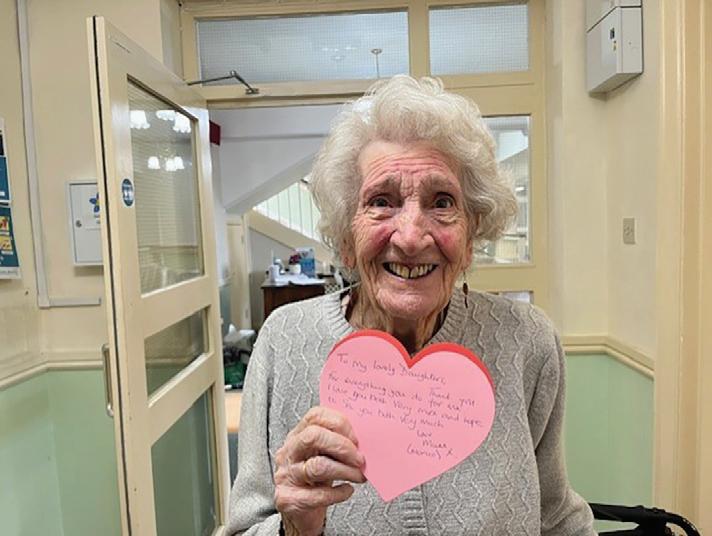 To My lovely Daughters,
Thank you
For everything you do for me
I love you both very much and hope
to See you both very much
Love
Mum
x